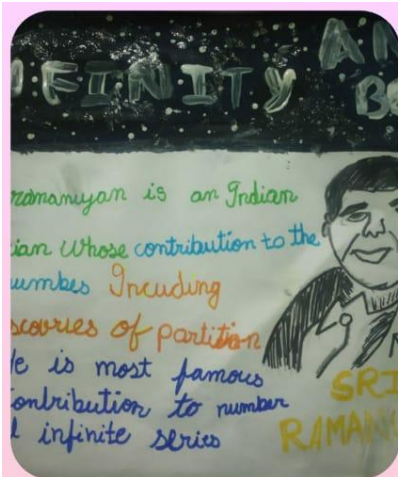 FINITY AN
BE
ramanuyan is an Indian
ian whose contribution to the
umbes Incuding
scovries of partition
e is most famous
ontribution to number
infinite series
SRI
RAMAN